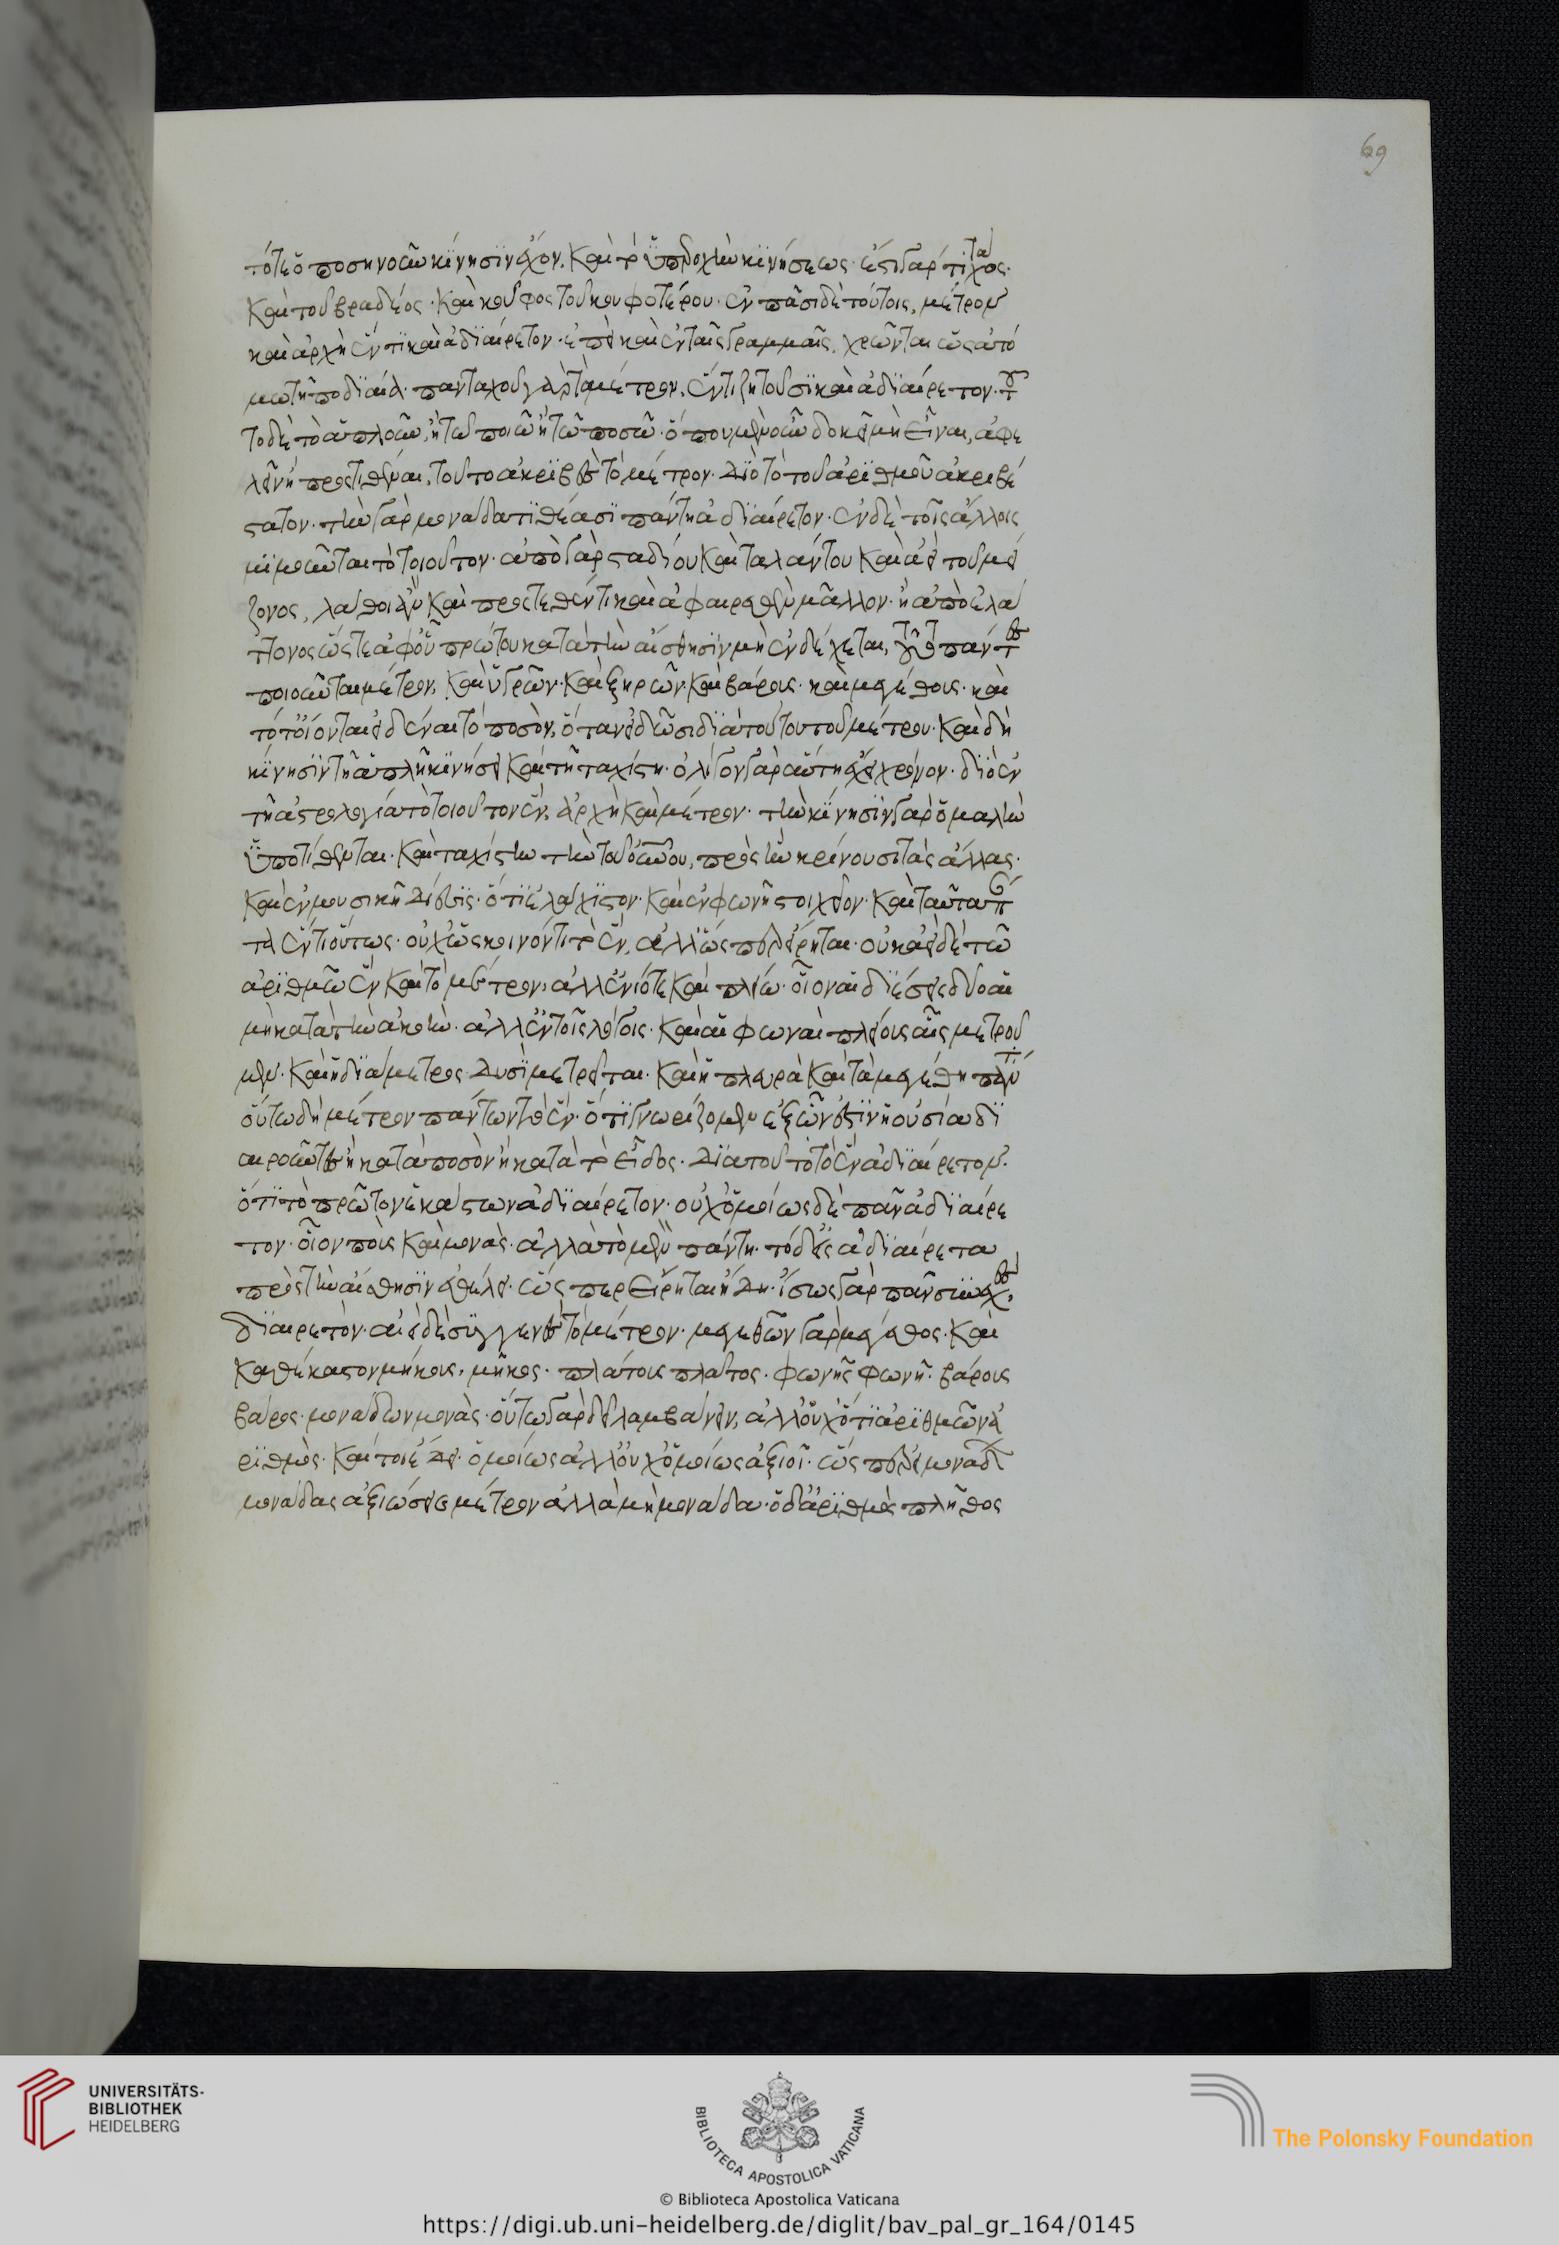 τό τε ὁποσηνοῦν κίνησϊν ἔχον. καὶ τὸ ὑπεροχὴν κϊνήσεως· ἔστι γάρ τι τάχος·
καὶ τοῦ βραδέος· καὶ κοῦφος τοῦ κουφοτέρου· ἐν πᾶσι δὲ τούτοις, μέτρον
καὶ ἀρχὴ ἕν τϊ καὶ ἀδϊαίρετον· ἐπεὶ καὶ ἐν ταῖς γραμμαῖς, χρῶνται ὡς ἀτό
μω τῆ ποδϊαία· πανταχοῦ γὰρ τὸ μέτρον, ἕν τι ζητοῦσϊ καὶ ἀδϊαίρετον· τοῦ
το δὲ τὸ ἁπλοῦν, ἢ τῶ ποιῶ ἢ τῶ ποσῶ· ὅπου μὲν οὖν δοκεῖ μὴ εἶναι, ἀφε
λεῖν ἢ προστιθέναι, τοῦτο ἀκρϊβὲς τὸ μέτρον· διὸ τὸ τοῦ ἀρϊθμοῦ ἀκριβέ
στατον· τὴν γὰρ μονάδα τϊθέασϊ πάντη ἀδϊαίρετον· ἐν δὲ τοῖς ἄλλοις
μϊμοῦνται τὸ τοιοῦτον· ἀπὸ γὰρ σταδίου καὶ ταλάντου καὶ ἀεὶ τοῦ μεί
ζονος, λάθοι ἂν καὶ προστεθέν τι καὶ ἀφαιρεθὲν μᾶλλον· ἢ ἀπὸ ἐλά
ττονος ὥστε ἀφ' οὗ πρώτου κατὰ τὴν αἴσθησϊν μὴ ἐνδέχεται, τοῦτο πάντες
ποιοῦνται μέτρον, καὶ ὑγρῶν· καὶ ξηρῶν· καὶ βάρους· καὶ μεγέθους· καὶ
τότ' οἴονται εἰδέναι τὸ ποσὸν, ὅταν εἰδῶσι δϊὰ τούτου τοῦ μέτρου· καὶ δὴ
κίνησϊν τῆ ἁπλῆ κϊνήσει καὶ τῆ ταχίστη· ὀλίγον γὰρ αὕτη ἔχει χρόνον· δϊὸ ἐν
τῆ ἀστρολογία τὸ τοιοῦτον ἓν, ἀρχὴ καὶ μέτρον· τὴν κίνησϊν γὰρ ὁμαλὴν
ὑποτίθενται· καὶ ταχίστην τὴν τοῦ οὐνου, πρὸς ἣν κρίνουσι τὰς ἄλλας·
καὶ ἐν μουσικῆ δίεσϊς· ὅτϊ ἐλάχϊστον· καὶ ἐν φωνῆ στοιχεῖον· καὶ ταῦτα πάν
τα ἕν τι οὕτως· οὐχ ὡς κοινόν τι τὸ ἓν, ἀλλ' ὥσπερ εἴρηται· οὐκ ἀεὶ δὲ τῶ
ἀρϊθμῶ ἓν καὶ τὸ μέτρον, ἀλλ' ἐνίοτε καὶ πλείω· οἷον αἱ δϊέσεις δύο αἱ
μὴ κατὰ τὴν ἀκοὴν· ἀλλ' ἐν τοῖς λόγοις· καὶ αἱ φωναὶ πλείους αἷς μετροῦ
μεν· καὶ ἡ δϊάμετρος δυσϊ μετρεῖται· καὶ ἡ πλευρὰ καὶ τὰ μεγέθη πάντα
οὕτω δὴ μέτρον πάντων τὸ ἕν· ὅτϊ γνωρίζομεν ἐξ ὧν ἐστϊν ἡ οὐσία δϊ
αιροῦντες ἢ κατὰ ποσὸν ἢ κατὰ τὸ εἶδος· δϊὰ τοῦτο τὸ ἓν ἀδϊαίρετον·
ὅτϊ τὸ πρῶτον ἑκάστων ἀδϊαίρετον· οὐχ ὁμοίως δὲ πᾶν ἀδϊαίρε
τον· οἷον ποὺς καὶ μονὰς· ἀλλὰ τὸ μὲν πάντη· τὸ δ' εἰς ἀδϊαίρετα
πρὸς τὴν αἴσθησϊν ἐθέλει· ὥσπερ εἴρηται ἤδη· ἴσως γὰρ πᾶν συνεχὲς,
δϊαιρετὸν· ἀεὶ δὲ συγγενὲς τὸ μέτρον· μεγεθῶν γὰρ μέγεθος· καὶ
καθ' ἕκαστον μήκους, μῆκος· πλάτους πλάτος· φωνῆς φωνὴ· βάρους
βάρος· μονάδων μονὰς· οὕτω γὰρ δεῖ λαμβάνειν, ἀλλ' οὐχ ὅτϊ ἀρϊθμῶν ἀ
ρϊθμὸς· καί τοι ἔδει· ὁμοίως ἀλλ' οὐχ ὁμοίως ἀξιοῖ· ὥσπερ εἰ μονάδων
μονάδας ἀξιώσειε μέτρον ἀλλὰ μὴ μονάδα· ὁ δ' ἀρϊθμὸς πλῆθος
69
UNIVERSITÄTS-
BIBLIOTHEK
HEIDELBERG
BIBLIOTECA APOSTOLICA VATICANA
The Polonsky Foundation
© Biblioteca Apostolica Vaticana
https://digi.ub.uni-heidelberg.de/diglit/bav_pal_gr_164/0145